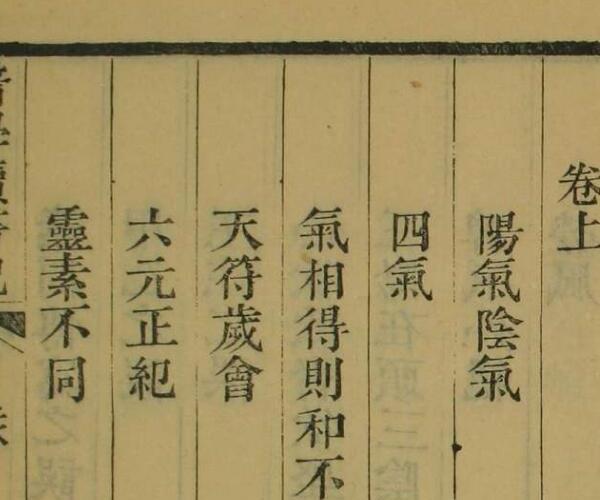 卷上
陽氣陰氣
四氣
氣相得則和不
天符歲會
六元正紀
靈素不同